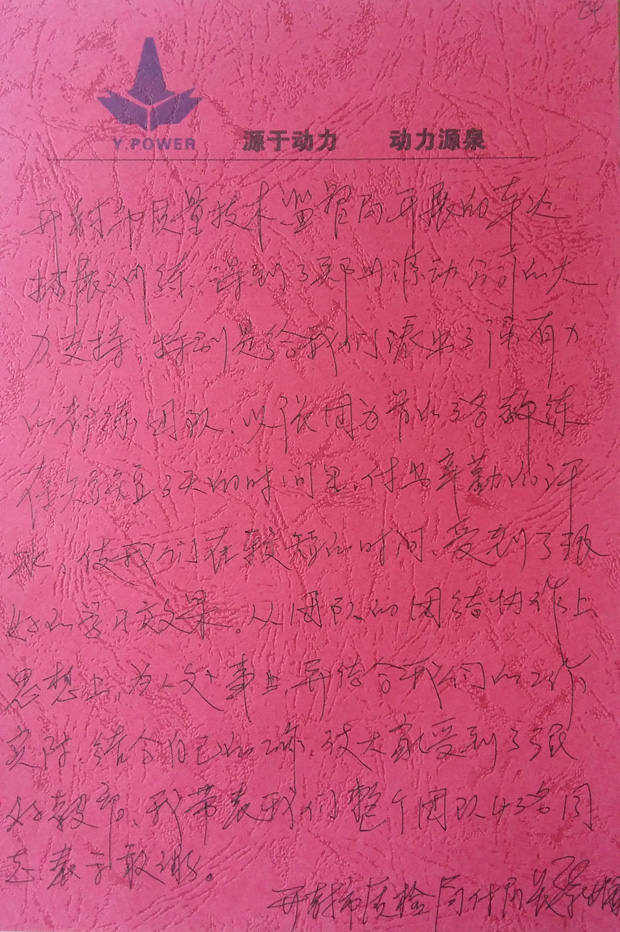 24
Y.POWER 源于动力 动力源泉
开封市质量技术监督局开展的
拓展训练，得到了郑州源动公司的大
力支持，特别是给我们派出了强有力
的教练团队，以张国为首的3名教练
在短短3天的时间里，付出辛勤的汗
水，使我们在较短的时间，受到了很
好的学习效果。从团队的团结协作上
思想上，为人文事业，并结合我们的工作
实际，结合自己的工作，使大家受到了很
好教育。我带表我们整个团队43名同
志表示敬谢。
开封市质检局